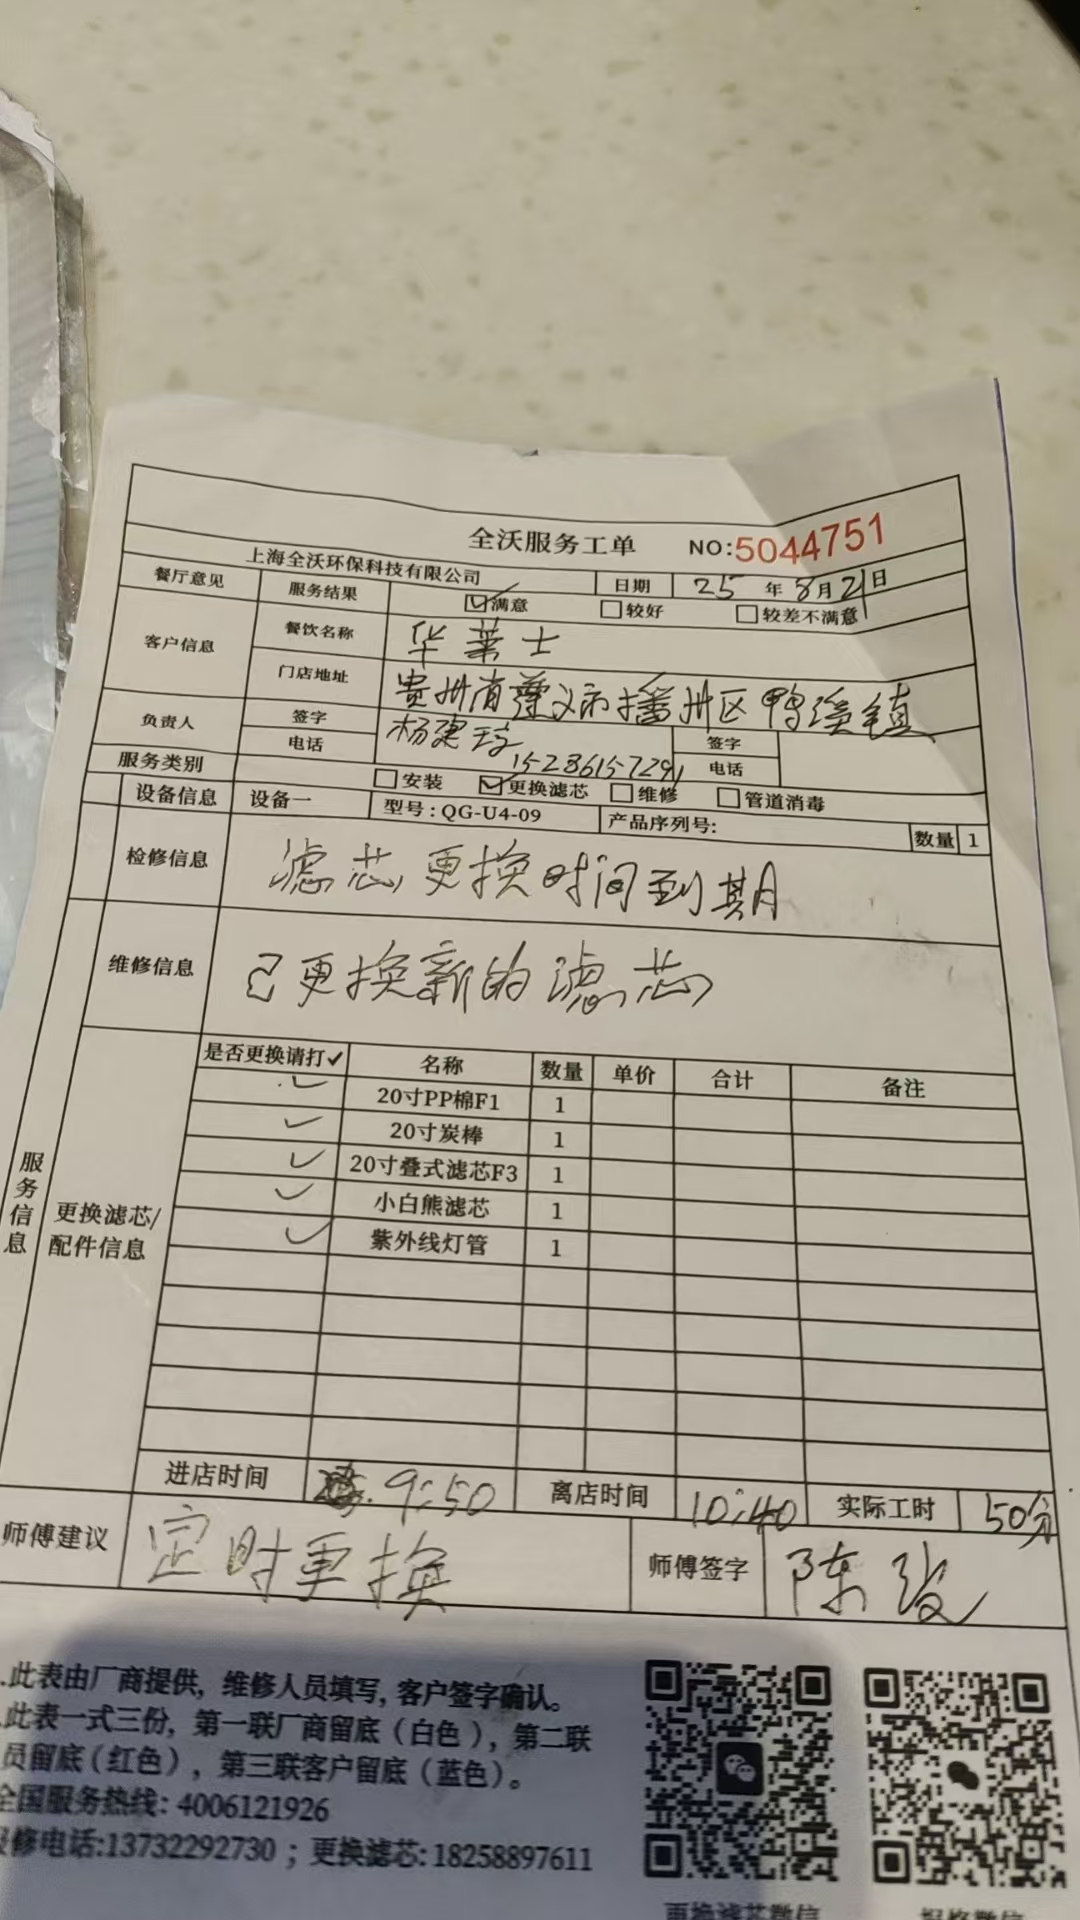 全沃服务工单 NO:5044751
上海全沃环保科技有限公司 日期 25年8月21日
餐厅意见 服务结果 ☑满意 □较好 □较差不满意
客户信息 餐饮名称 华莱士
门店地址 贵州省遵义市播州区鸭溪镇
负责人 签字 杨建 签字
电话 15286157291 电话
服务类别 □安装 ☑更换滤芯 □维修 □管道消毒
设备信息 设备一 型号:QG-U4-09 产品序列号: 数量 1
检修信息 滤芯更换时间到期
维修信息 已更换新的滤芯
服务信息
更换滤芯/配件信息
是否更换请打✓ 名称 数量 单价 合计 备注
✓ 20寸PP棉F1 1
✓ 20寸炭棒 1
✓ 20寸叠式滤芯F3 1
✓ 小白熊滤芯 1
✓ 紫外线灯管 1
进店时间 9:50 离店时间 10:40 实际工时 50分
师傅建议 定时更换 师傅签字 陈
.此表由厂商提供,维修人员填写,客户签字确认。
.此表一式三份,第一联厂商留底(白色),第二联
员留底(红色),第三联客户留底(蓝色)。
全国服务热线: 4006121926
报修电话:13732292730;更换滤芯:18258897611
更换滤芯微信 报修微信